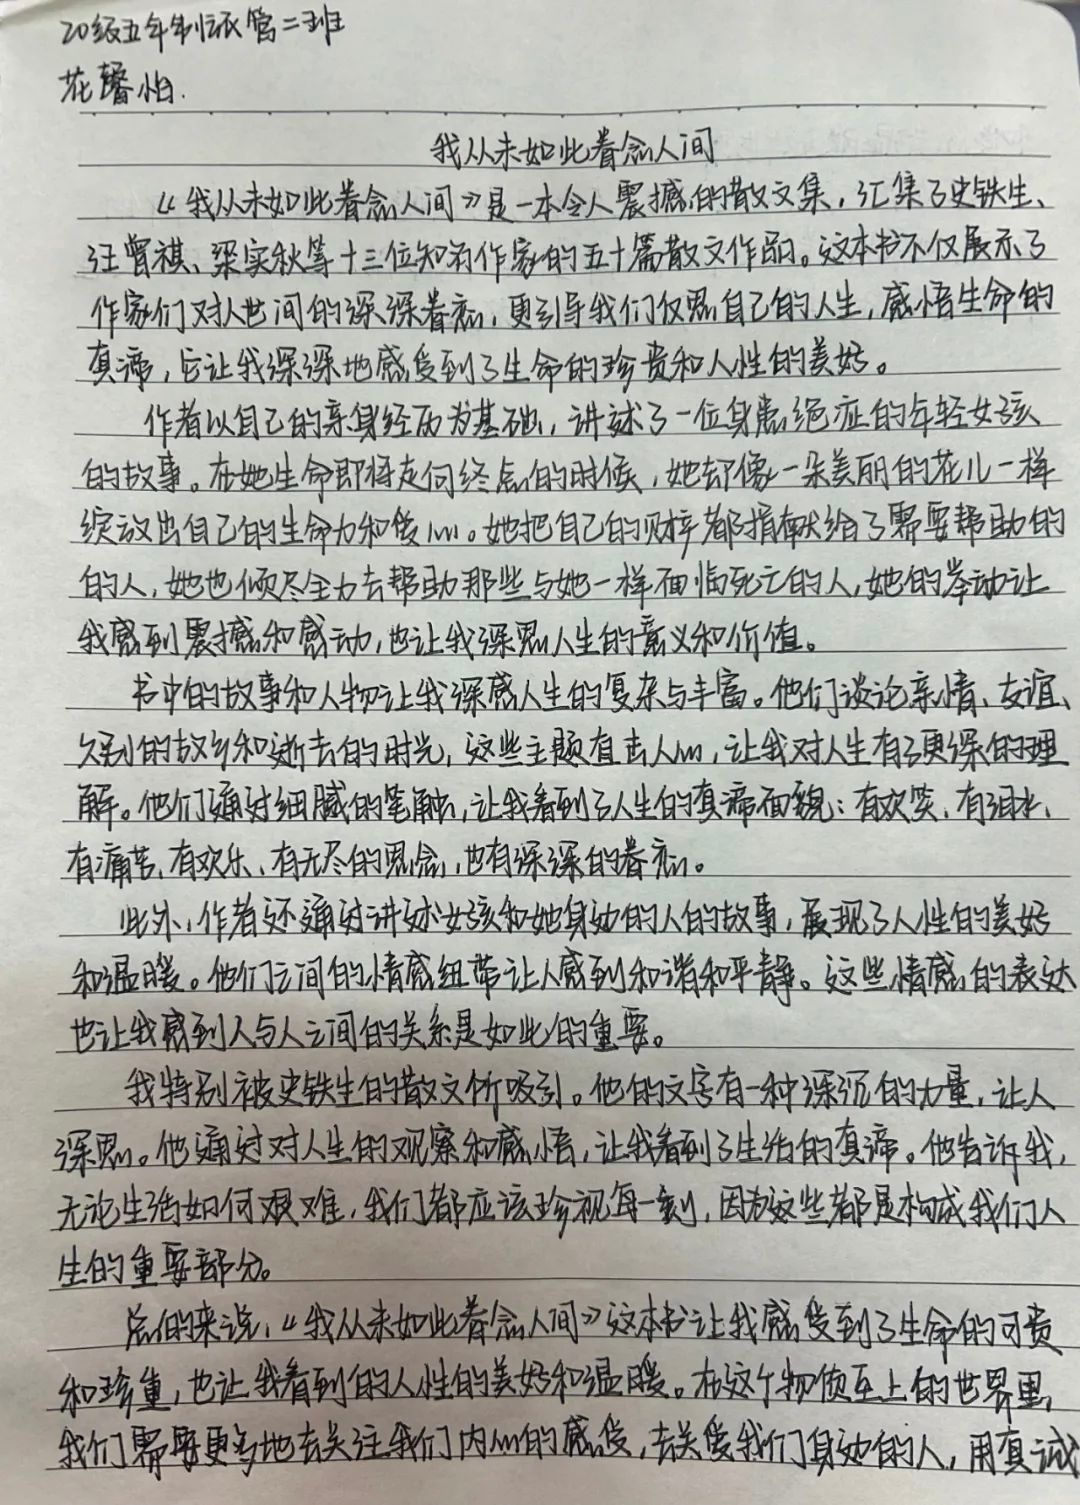 20级五年制旅管二班
花馨怡.
我从未如此眷念人间
《我从未如此眷念人间》是一本令人震撼的散文集，汇集了史铁生、
汪曾祺、梁实秋等十三位知名作家的五十篇散文作品。这本书不仅展示了
作家们对人世间的深深眷恋，更引导我们反思自己的人生，感悟生命的
真谛，它让我深深地感受到了生命的珍贵和人性的美好。
作者以自己的亲身经历为基础，讲述了一位身患绝症的年轻女孩
的故事。在她生命即将走向终点的时候，她却像一朵美丽的花儿一样
绽放出自己的生命力和爱心。她把自己的财产都捐献给了需要帮助的
的人，她也倾尽全力去帮助那些与她一样面临死亡的人，她的举动让
我感到震撼和感动，也让我深思人生的意义和价值。
书中的故事和人物让我深感人生的复杂与丰富。他们谈论亲情、友谊、
久别的故乡和逝去的时光，这些主题直击人心，让我对人生有了更深的理
解。他们通过细腻的笔触，让我看到了人生的真谛面貌：有欢笑、有泪水、
有痛苦、有欢乐、有无尽的思念，也有深深的眷恋。
此外，作者还通过讲述女孩和她身边的人的故事，展现了人性的美好
和温暖。他们之间的情感纽带让人感到和谐和平静。这些情感的表达
也让我感到人与人之间的关系是如此的重要。
我特别被史铁生的散文所吸引。他的文字有一种深沉的力量，让人
深思。他通过对人生的观察和感悟，让我看到了生活的真谛。他告诉我，
无论生活如何艰难，我们都应该珍视每一刻，因为这些都是构成我们人
生的重要部分。
总的来说，《我从未如此眷念人间》这本书让我感受到了生命的可贵
和珍重，也让我看到的人性的美好和温暖。在这个物质至上的世界里，
我们需要更多地去关注我们内心的感受，去关爱我们身边的人，用真诚